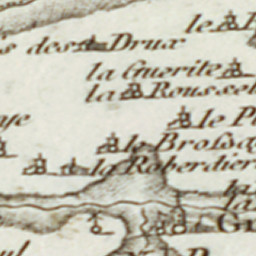 le
des Drux
la Guerite
la Rousse
le
le Brossa
la Roberdier
la
la